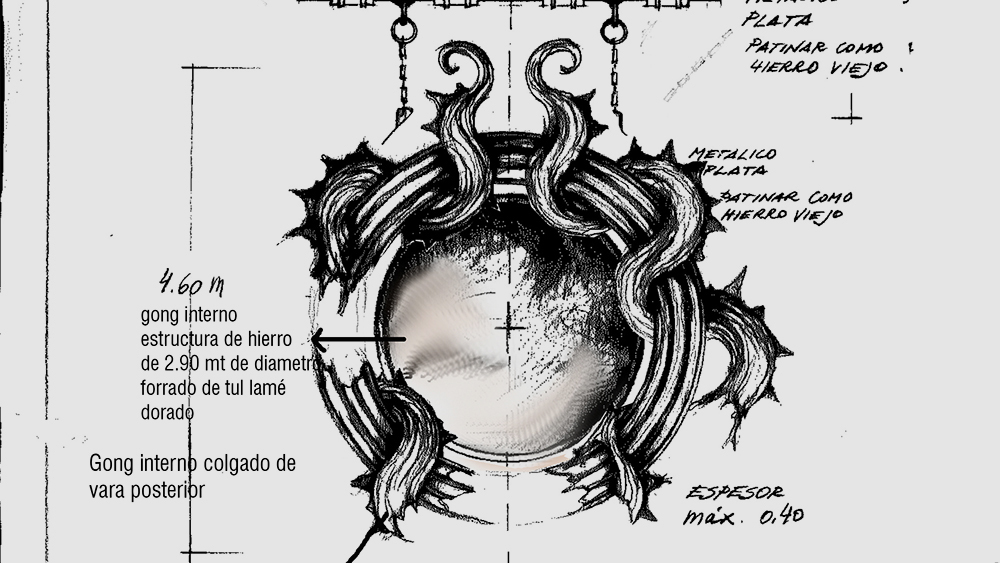 PLATA
PATINAR COMO
HIERRO VIEJO .
METALICO
PLATA
PATINAR COMO
HIERRO VIEJO
4.60 m
gong interno
estructura de hierro
de 2.90 mt de diametro
forrado de tul lamé
dorado
Gong interno colgado de
vara posterior
ESPESOR
máx. 0,40